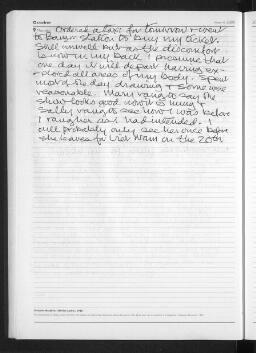 October
Ordered a taxi for tomorrow & went
to Station to buy my ticket.
Still unwell but as the discomfort
is now in my back I presume that
one day it will depart having ex-
plored all areas of my body. Spent
most of the day drawing & some were
reasonable. Mary rang to say the
show looks good now it is hung &
Sally rang to see how I was before
I rang her as I had intended. I
will probably only see her once before
she leaves for Viet Nam on the 20th